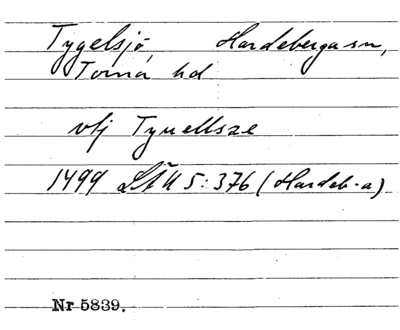 Tygelsjö, Hardeberga sn,
Torna hd
vlj Tyuellsze
1499 LÄU 5:376 (Hardeb-a)
Nr 5839.